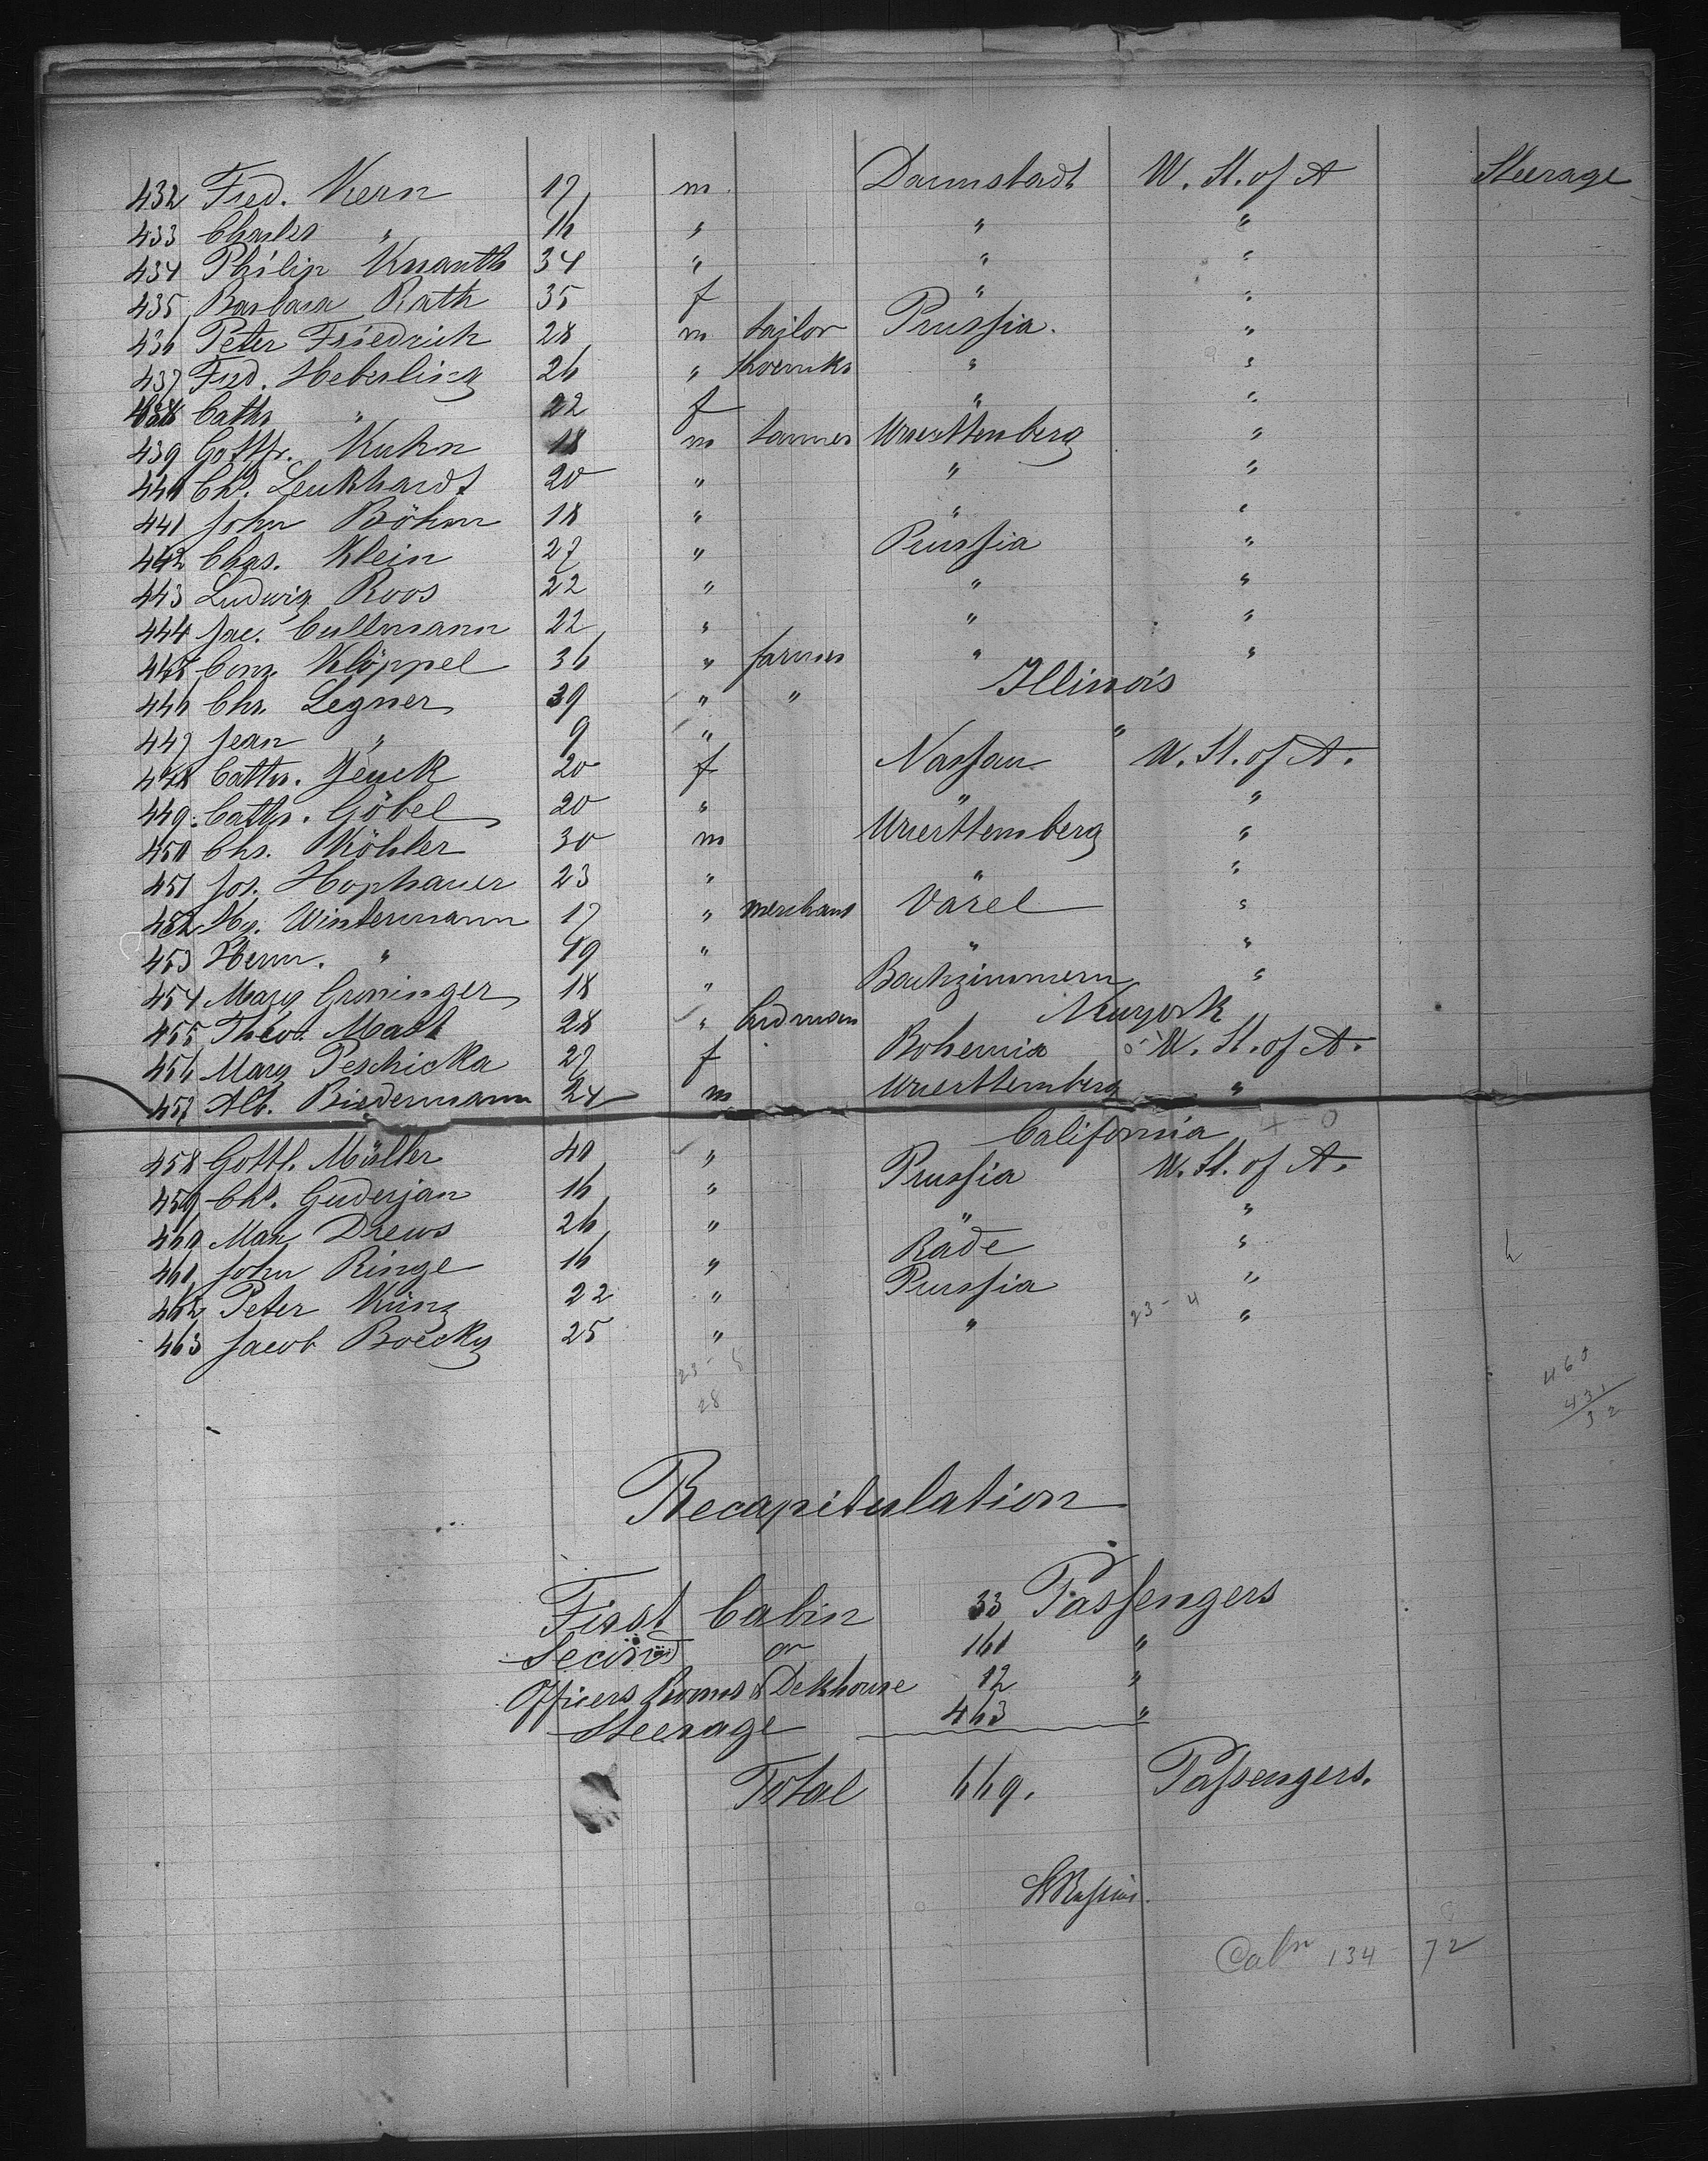 432 Fred. Kern 17 m Darmstadt U. St. of A Steerage
433 Charles " 16 " " "
434 Philip Knauth 34 " " "
435 Barbara Rath 35 f " "
436 Peter Friedrich 28 m tailor Prussia. "
437 Fred. Heberling 26 " Shoemkr " "
438 Cathr " 22 f " "
439 Gottfr. Kuhn 18 m tanner Wuerttemberg "
440 Chs. Leukhardt 20 " " "
441 John Böhm 18 " " "
442 Chas. Klein 27 " Prussia "
443 Ludwig Roos 22 " " "
444 Jac. Cullmann 22 " " "
445 Conr. Klöppel 36 " farmer " "
446 Chr. Legner 39 " " Illinois
447 Jean " 9 " "
448 Cathr. Jeuck 20 f Nassau U. St. of A.
449 Cathr. Göbel 20 " " "
450 Chs. Köhler 30 m Wuerttemberg "
451 Jos. Hophauer 23 " " "
452 Hy. Wintermann 17 " merchant Varel "
453 Herm. " 19 " " "
454 Marg Groninger 18 " Bachzimmern "
455 Theod. Mast 28 " Newyork
456 Marg Peschicka 27 f Bohemia U. St. of A.
457 Alb. Biedermann 24 m Wuerttemberg "
458 Gottl. Müller 40 " California
459 Chs. Guderjan 16 " Prussia U. St. of A.
460 Max Drews 26 " " "
461 John Ringe 16 " Rade "
462 Peter Küng 22 " Prussia "
463 Jacob Boecky 25 " " "
23 - 4
23 - 5
28
431
32
Recapitulation
First Cabin 33 Passengers
Second " 161 "
Officers Rooms & Dekhouse 12 "
Steerage 463 "
Total 669. Passengers.
Cabn 134 72